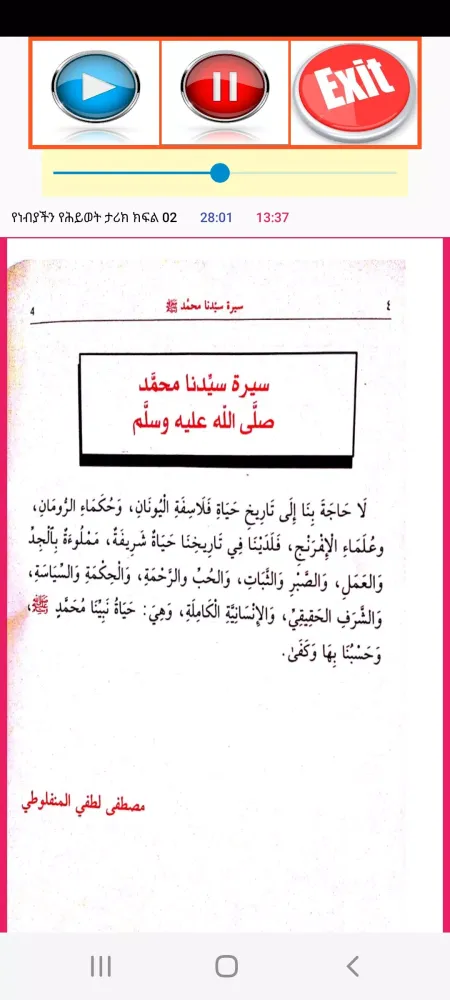 Exit
የነብያችን የሕይወት ታሪክ ክፍል 02 28:01 13:37
٤ سيرة سيدنا محمد ﷺ 4
سيرة سيِّدنا محمَّد
صلَّى اللّه عليه وسلَّم
لَا حَاجَةَ بِنَا إِلَى تَارِيخِ حَيَاةِ فَلَاسِفَةِ الْيُونَانِ، وَحُكَمَاءِ الرُّومَانِ،
وعُلَمَاءِ الْإِفْرَنْجِ، فَلَدَيْنَا فِي تَارِيخِنَا حَيَاةٌ شَرِيفَةٌ، مَمْلُوءَةٌ بِٱلْجِدِّ
وَالعَمَلِ، وَالصَّبْرِ وَالثَّبَاتِ، وَالحُبِّ والرَّحْمَةِ، وَالْحِكْمَةِ وَالسِّيَاسَةِ،
وَالشَّرَفِ الحَقِيقِيِّ، وَالإِنْسَانِيَّةِ الْكَامِلَةِ، وَهِيَ: حَيَاةُ نَبِيِّنَا مُحَمَّدٍ ﷺ،
وَحَسْبُنَا بِهَا وَكَفَىٰ.
مصطفى لطفي المنفلوطي